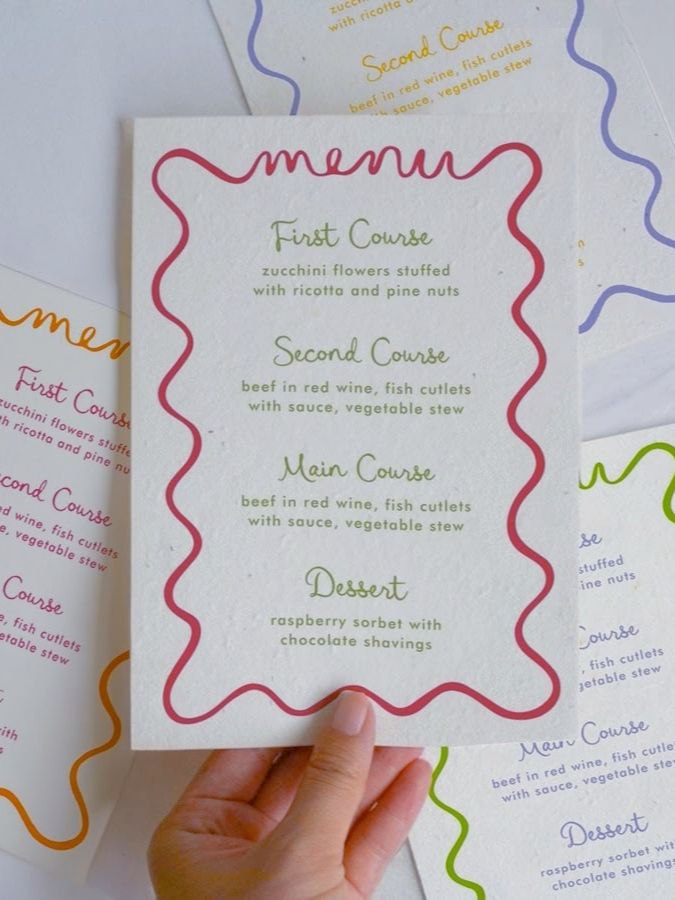 menu
First Course
zucchini flowers stuffed
with ricotta and pine nuts
Second Course
beef in red wine, fish cutlets
with sauce, vegetable stew
Main Course
beef in red wine, fish cutlets
with sauce, vegetable stew
Dessert
raspberry sorbet with
chocolate shavings
with ricotta
Second Course
beef in red wine, fish cutlets
with sauce, vegetable stew
First Course
zucchini flowers
ricotta and pine
wine, fish cutlets
vegetable stew
Course
fish cutlets
stew
stuffed
nuts
Course
fish cutlets
stew
Main Course
beef in red wine, fish
with sauce, vegetable
Dessert
raspberry sorbet
chocolate shavings